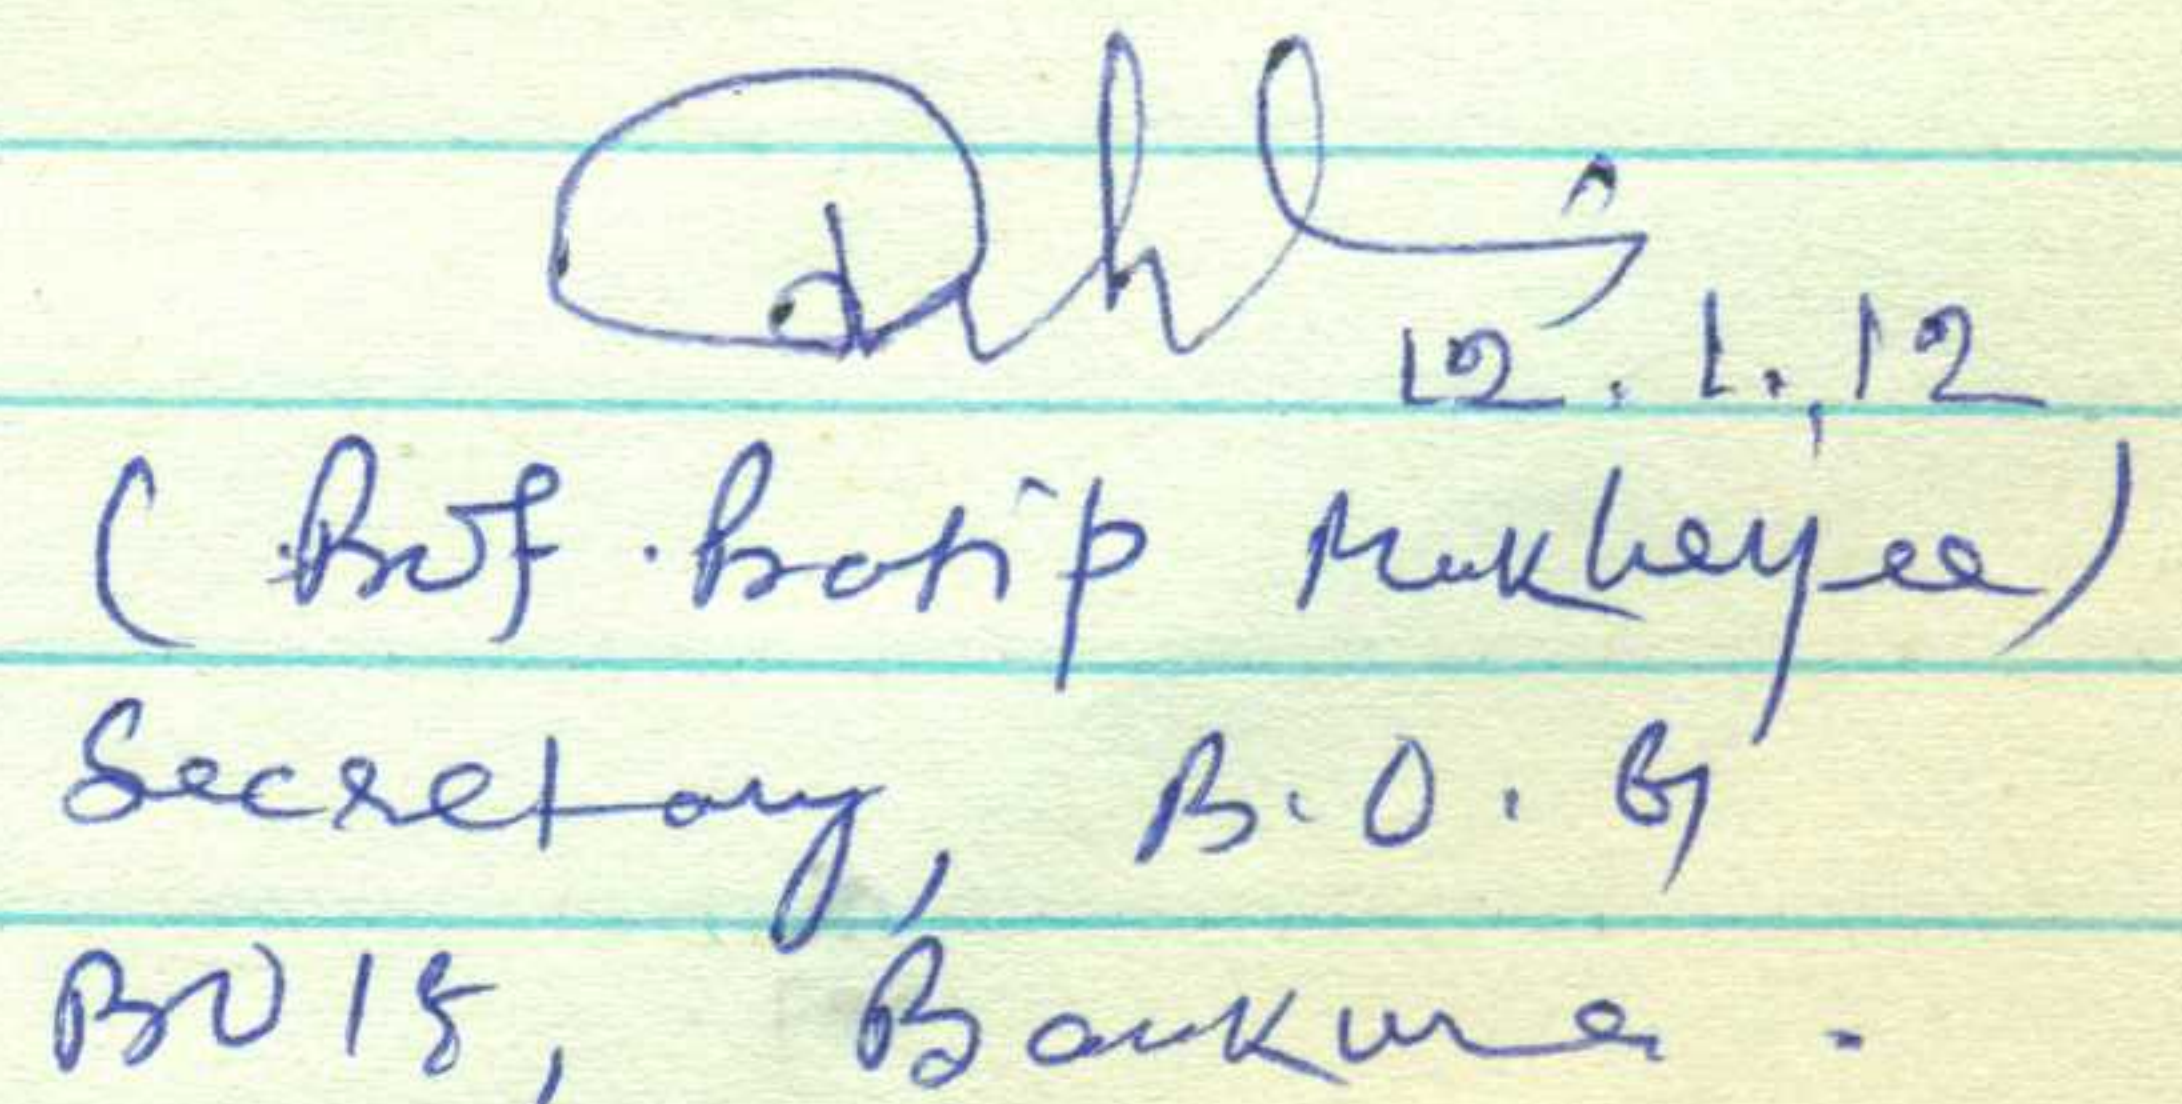 12.1.12
(Prof. Pratip Mukherjee)
Secretary, B.O.G
BUIE, Bankura.